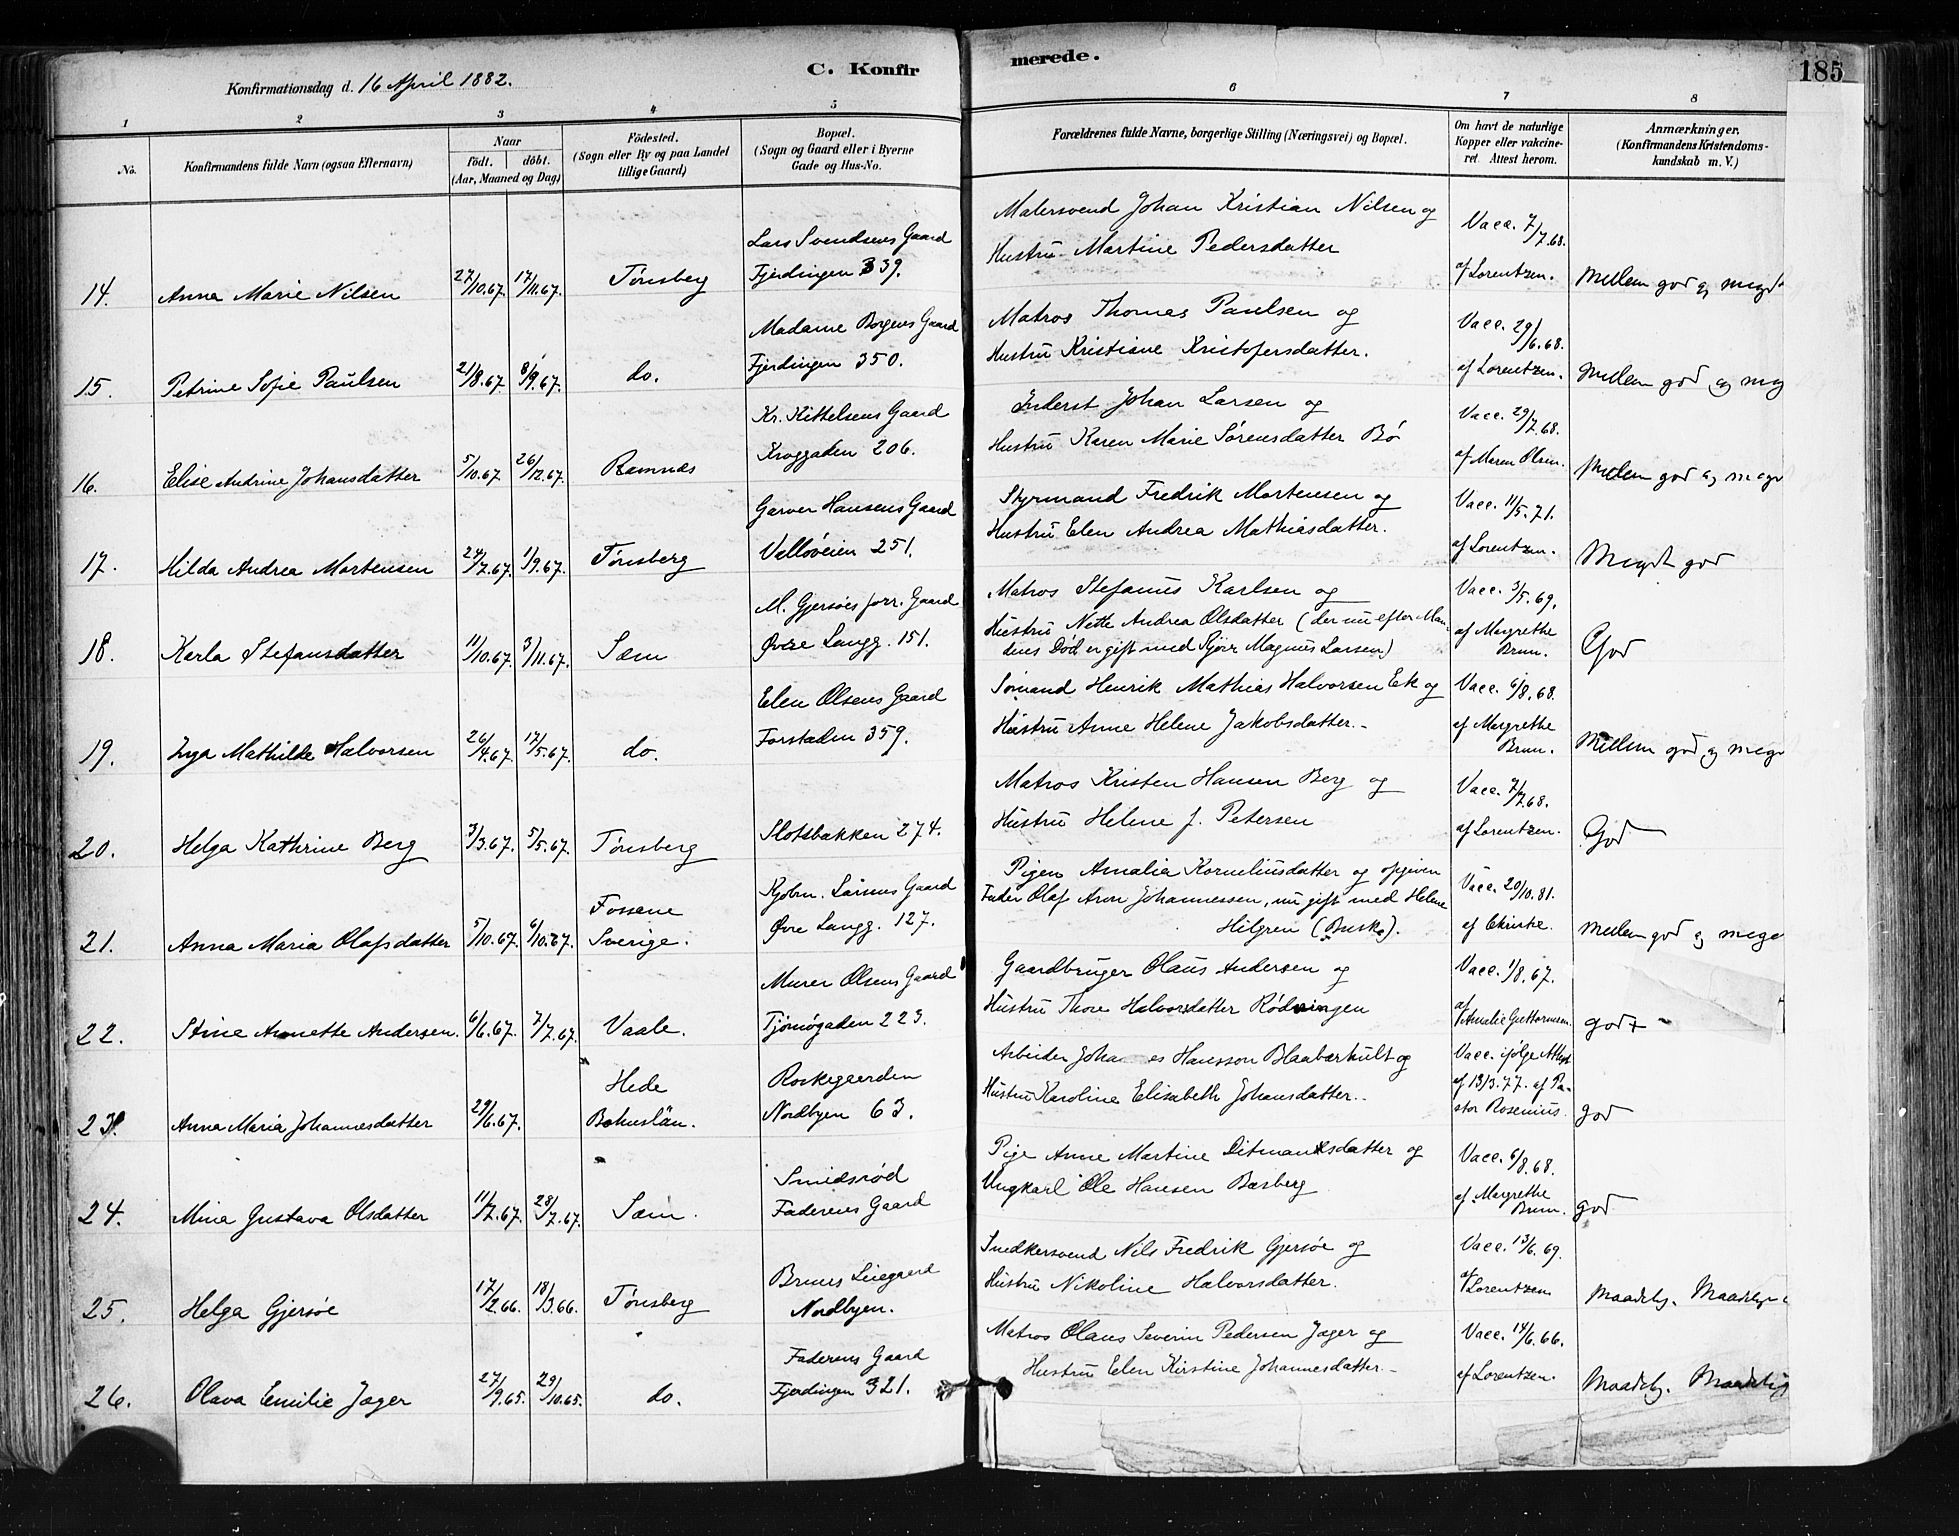 C. Konfirmerede.
185
Konfirmationsdag d. 16 April 1882.
1 2 3 4 5 6 7 8
No.
Konfirmandens fulde Navn (ogsaa Efternavn)
Naar
födt. döbt.
(Aar, Maaned og Dag)
Födested.
(Sogn eller By og paa Landet
tillige Gaard)
Bopæl.
(Sogn og Gaard eller i Byerne
Gade og Hus-No.
Forældrenes fulde Navne, borgerlige Stilling (Næringsvei) og Bopæl.
Om havt de naturlige
Kopper eller vakcine-
ret. Attest herom.
Anmærkninger.
(Konfirmandens Kristendoms-
kundskab m. V.)
14. Anna Marie Nilsen 27/10.67. 17/11.67. Tönsberg
Lars Svendsens Gaard
Fjerdingen 339.
Malersvend Johan Kristian Nilsen og
Hustru Martine Pedersdatter
Vacc. 7/7.68.
af Lorentzen.
Mellem god og megt
15. Petrine Sofie Paulsen 21/8.67. 8/9.67. do.
Madame Borgens Gaard
Fjerdingen 350.
Matros Thomas Paulsen og
Hustru Kristiane Kristofersdatter.
Vacc. 29/6.68.
af Lorentzen.
Mellem god og meg
16. Elise Andrine Johansdatter 5/10.67. 26/12.67. Ramnæs
Kr. Kittelsens Gaard
Kroggaden 206.
Inderst Johan Larsen og
Hustru Karen Marie Sörensdatter Bö
Vacc. 29/7.68.
af Maren Olsen.
Mellem god og mege
17. Hilda Andrea Mortensen 24/7.67. 1/9.67. Tönsberg
Garver Hansens Gaard
Vallöveien 251.
Styrmand Fredrik Mortensen og
Hustru Elen Andrea Mathiasdatter.
Vacc. 11/5.71.
af Lorentzen.
Megt god
18. Karla Stefansdatter 11/10.67. 3/11.67. Sæm
M. Gjersöes forr. Gaard
Övre Langg. 151.
Matros Stefanus Karlsen og
Hustru Nette Andrea Olsdatter (der nu efter Man-
dens Död er gift med Sjöm Magnus Larsen)
Vacc. 3/5.69.
af Margrethe
Brun.
God
19. Inga Mathilde Halvorsen 26/4.67. 17/5.67. do.
Elen Olsens Gaard
Forstaden 359.
Sömand Henrik Mathias Halvorsen Eek og
Hustru Anne Helene Jakobsdatter.
Vacc. 6/8.68.
af Margrethe
Brun.
Mellem god og mege
20. Helga Kathrine Berg 3/3.67. 5/5.67. Tönsberg
Slotsbakken 274.
Matros Kristen Hansen Berg og
Hustru Helene f. Petersen
Vacc. 7/7.68.
af Lorentzen.
God
21. Anna Maria Olafsdatter 5/10.67. 6/10.67.
Fossane
Sverige.
Kjöbm. Larsens Gaard
Övre Langg. 127.
Pigen Amalia Korneliusdatter og opgiven
Fader Olaf Aron Johannessen, nu gift med Helene
Hilgren (Buska).
Vacc. 20/10.81.
af Christie.
Mellem god og mege
22. Stine Annette Andersen. 6/6.67. 7/7.67. Vaale.
Murer Olsens Gaard
Tjömögaden 223.
Gaardbruger Olaus Andersen og
Hustru Thore Halvorsdatter Rödningen
Vacc. 1/8.67.
af Amalie Guttormsen.
god+
23. Anna Maria Johannesdatter 29/6.67.
Hede
Bohuslän.
Roskegaarden
Nordbyen 63.
Arbeider Johannes Hansson Blaabærhult og
Hustru Karoline Elisabeth Johansdatter.
Vacc. ifölge Attest
af 13/3.77. af Pa-
stor Rosenius.
god
24. Mina Gustava Olsdatter 11/7.67. 28/7.67. Sæm.
Smidsröd
Faderens Gaard
Pige Anne Martine Ditmanesdatter og
Ungkarl Ole Hansen Basberg
Vacc. 6/8.68.
af Margrethe
Brun.
god
25. Helga Gjersöe 17/2.66. 18/3.66. Tönsberg
Bruns Leiegaard
Nordbyen.
Snedkersvend Nils Fredrik Gjersöe og
Hustru Nikoline Halvorsdatter.
Vacc. 13/6.69.
af Lorentzen
Maadelig. Maadelige
26. Olava Emilie Jæger 27/9.65. 29/10.65. do.
Faderens Gaard
Fjerdingen 321.
Matros Olaus Severin Pedersen Jæger og
Hustru Elen Kirstine Johannesdatter.
Vacc. 14/6.66.
af Lorentzen.
Maadelig. Maadelig